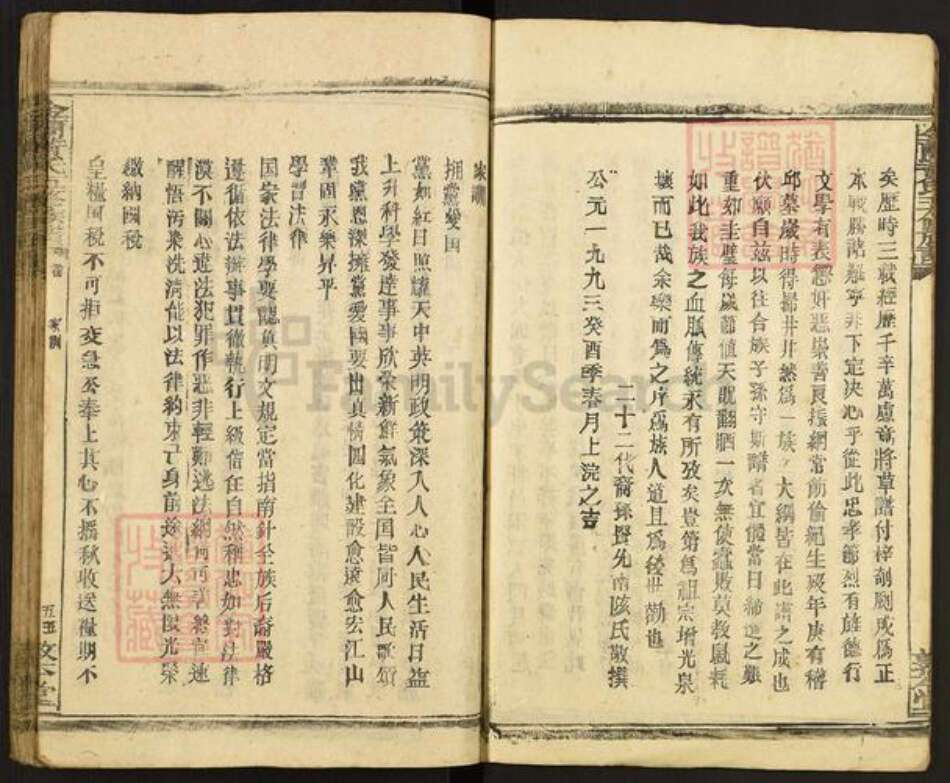 矣歷時三載經歷千辛萬慮竟將草譜付梓剞劂成偽正
本戰勝諸難寧非下定决心乎從此忠孝節烈有旌德行
文學有表懲奸惡崇善良振綱常飭倫紀生殁年庚有稽
邱墓歲時得掃井井然為一族之大綱皆在此譜之成也
伏願自茲以往合族子孫守斯譜者宜體當日締造之難
重如圭璧每歲節值天貺翻晒一次無使蠹敗莫教鼠耗
如此我族之血脈傳統永有所攷矣豈第為祖宗增光泉
壤而已哉余樂而為之序為族人道且為後世勸也
二十二代裔孫賢先南陔氏敬撰
公元一九九三癸酉季春月上浣之吉
家訓
拥黨愛国
黨如紅日照耀天中英明政策深入人心人民生活日益
上升科學發達事事欣榮新鮮氣象全国皆同人民歌頌
我黨恩深擁黨愛國要出真情四化建設愈遠愈宏江山
鞏固永樂昇平
學習法律
国家法律學要認真明文規定當指南針全族后裔嚴格
遵循依法辦事貫徹執行上級信任自然利忠如對法律
漠不關心違法犯罪作惡非輕難逃法網
醒悟污業洗清能以法律約束己身前途遠大無限光榮
繳納國稅
皇糧国稅不可拒交急公奉上其心不搖秋收送糧期不
家訓
五五
敦本堂
FamilySearch